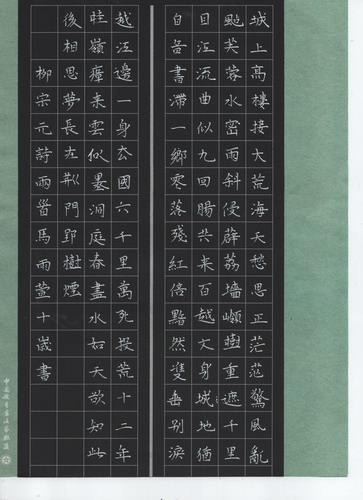 城上高樓接大荒海天愁思正茫茫驚風亂
颭芙蓉水密雨斜侵薜荔墻嶺樹重遮千里
目江流曲似九回腸共來百越文身城地猶
自音書滯一鄉零落殘紅倍黯然雙垂別淚
越江邊一身去國六千里萬死投荒十二年
桂嶺瘴來雲似墨洞庭春盡水如天欲知此
後相思夢長在荊門郢樹煙
柳宗元詩兩首馬雨萱十歲書